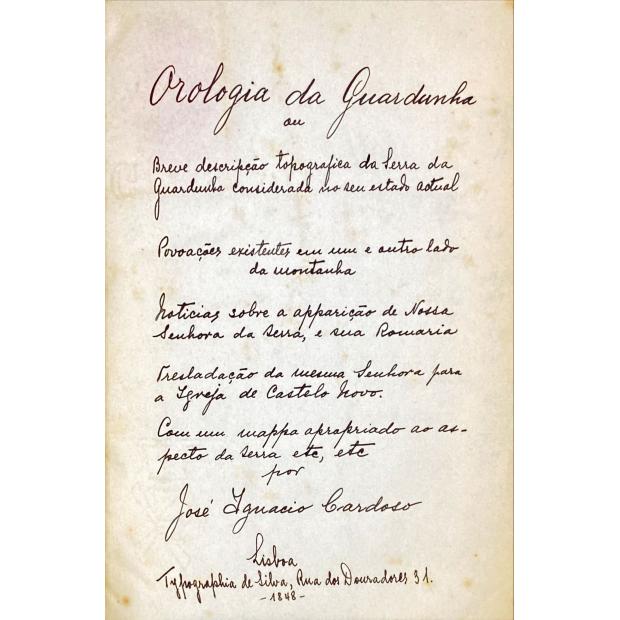 Orologia da Guardunha
ou
Breve descripção topografica da Serra da
Guardunha considerada no seu estado actual
Povoações existentes em um e outro lado
da montanha
Noticias sobre a apparição de Nossa
Senhora da Serra, e sua Romaria
Tresladação da mesma Senhora para
a Igreja de Castelo Novo.
Com um mappa apropriado ao as-
pecto da serra etc, etc
por
José Ignacio Cardoso
Lisboa
Typographia de Silva, Rua dos Douradores 31.
-1848-